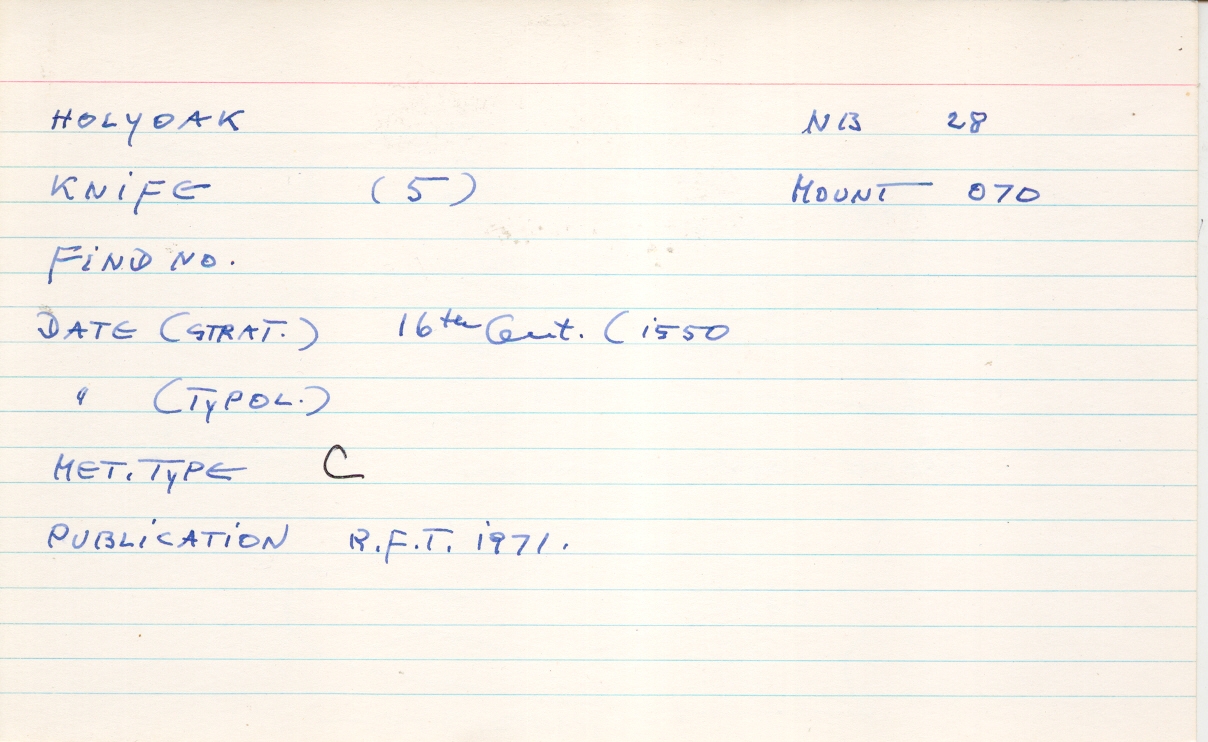 HOLYOAK NB 28
KNiFE (5) MOUNT 070
FiND NO.
DATE (STRAT.) 16th Cent. (1550
" (TYPOL.)
MET. TYPE C
PUBLiCATiON R.F.T. 1971.